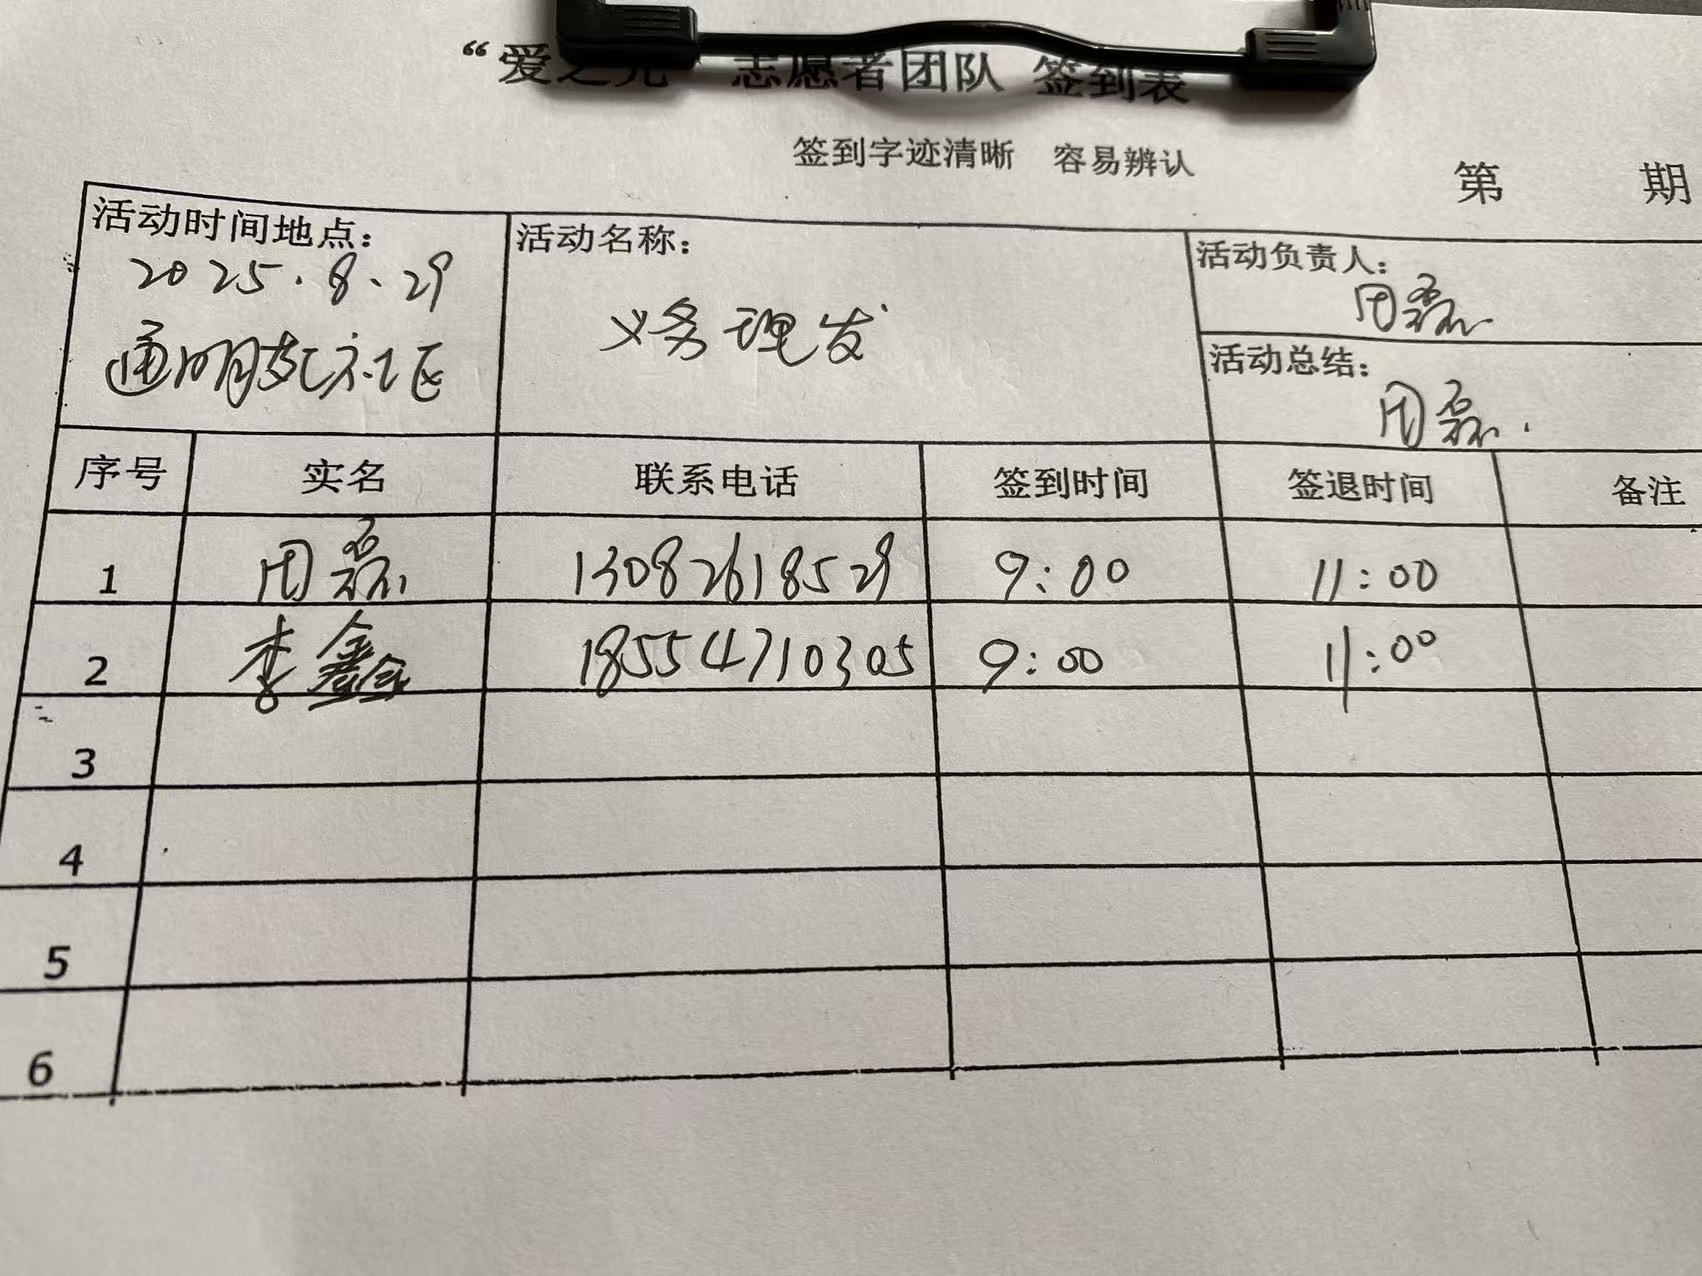 “爱之光”志愿者团队 签到表
签到字迹清晰 容易辨认
第 期
活动时间地点：
2025.8.29
通明苑社区
活动名称：
义务理发
活动负责人：
周磊
活动总结：
周磊
序号 实名 联系电话 签到时间 签退时间 备注
1 周磊 13082618529 9:00 11:00
2 李鑫 18554710305 9:00 11:00
3
4
5
6